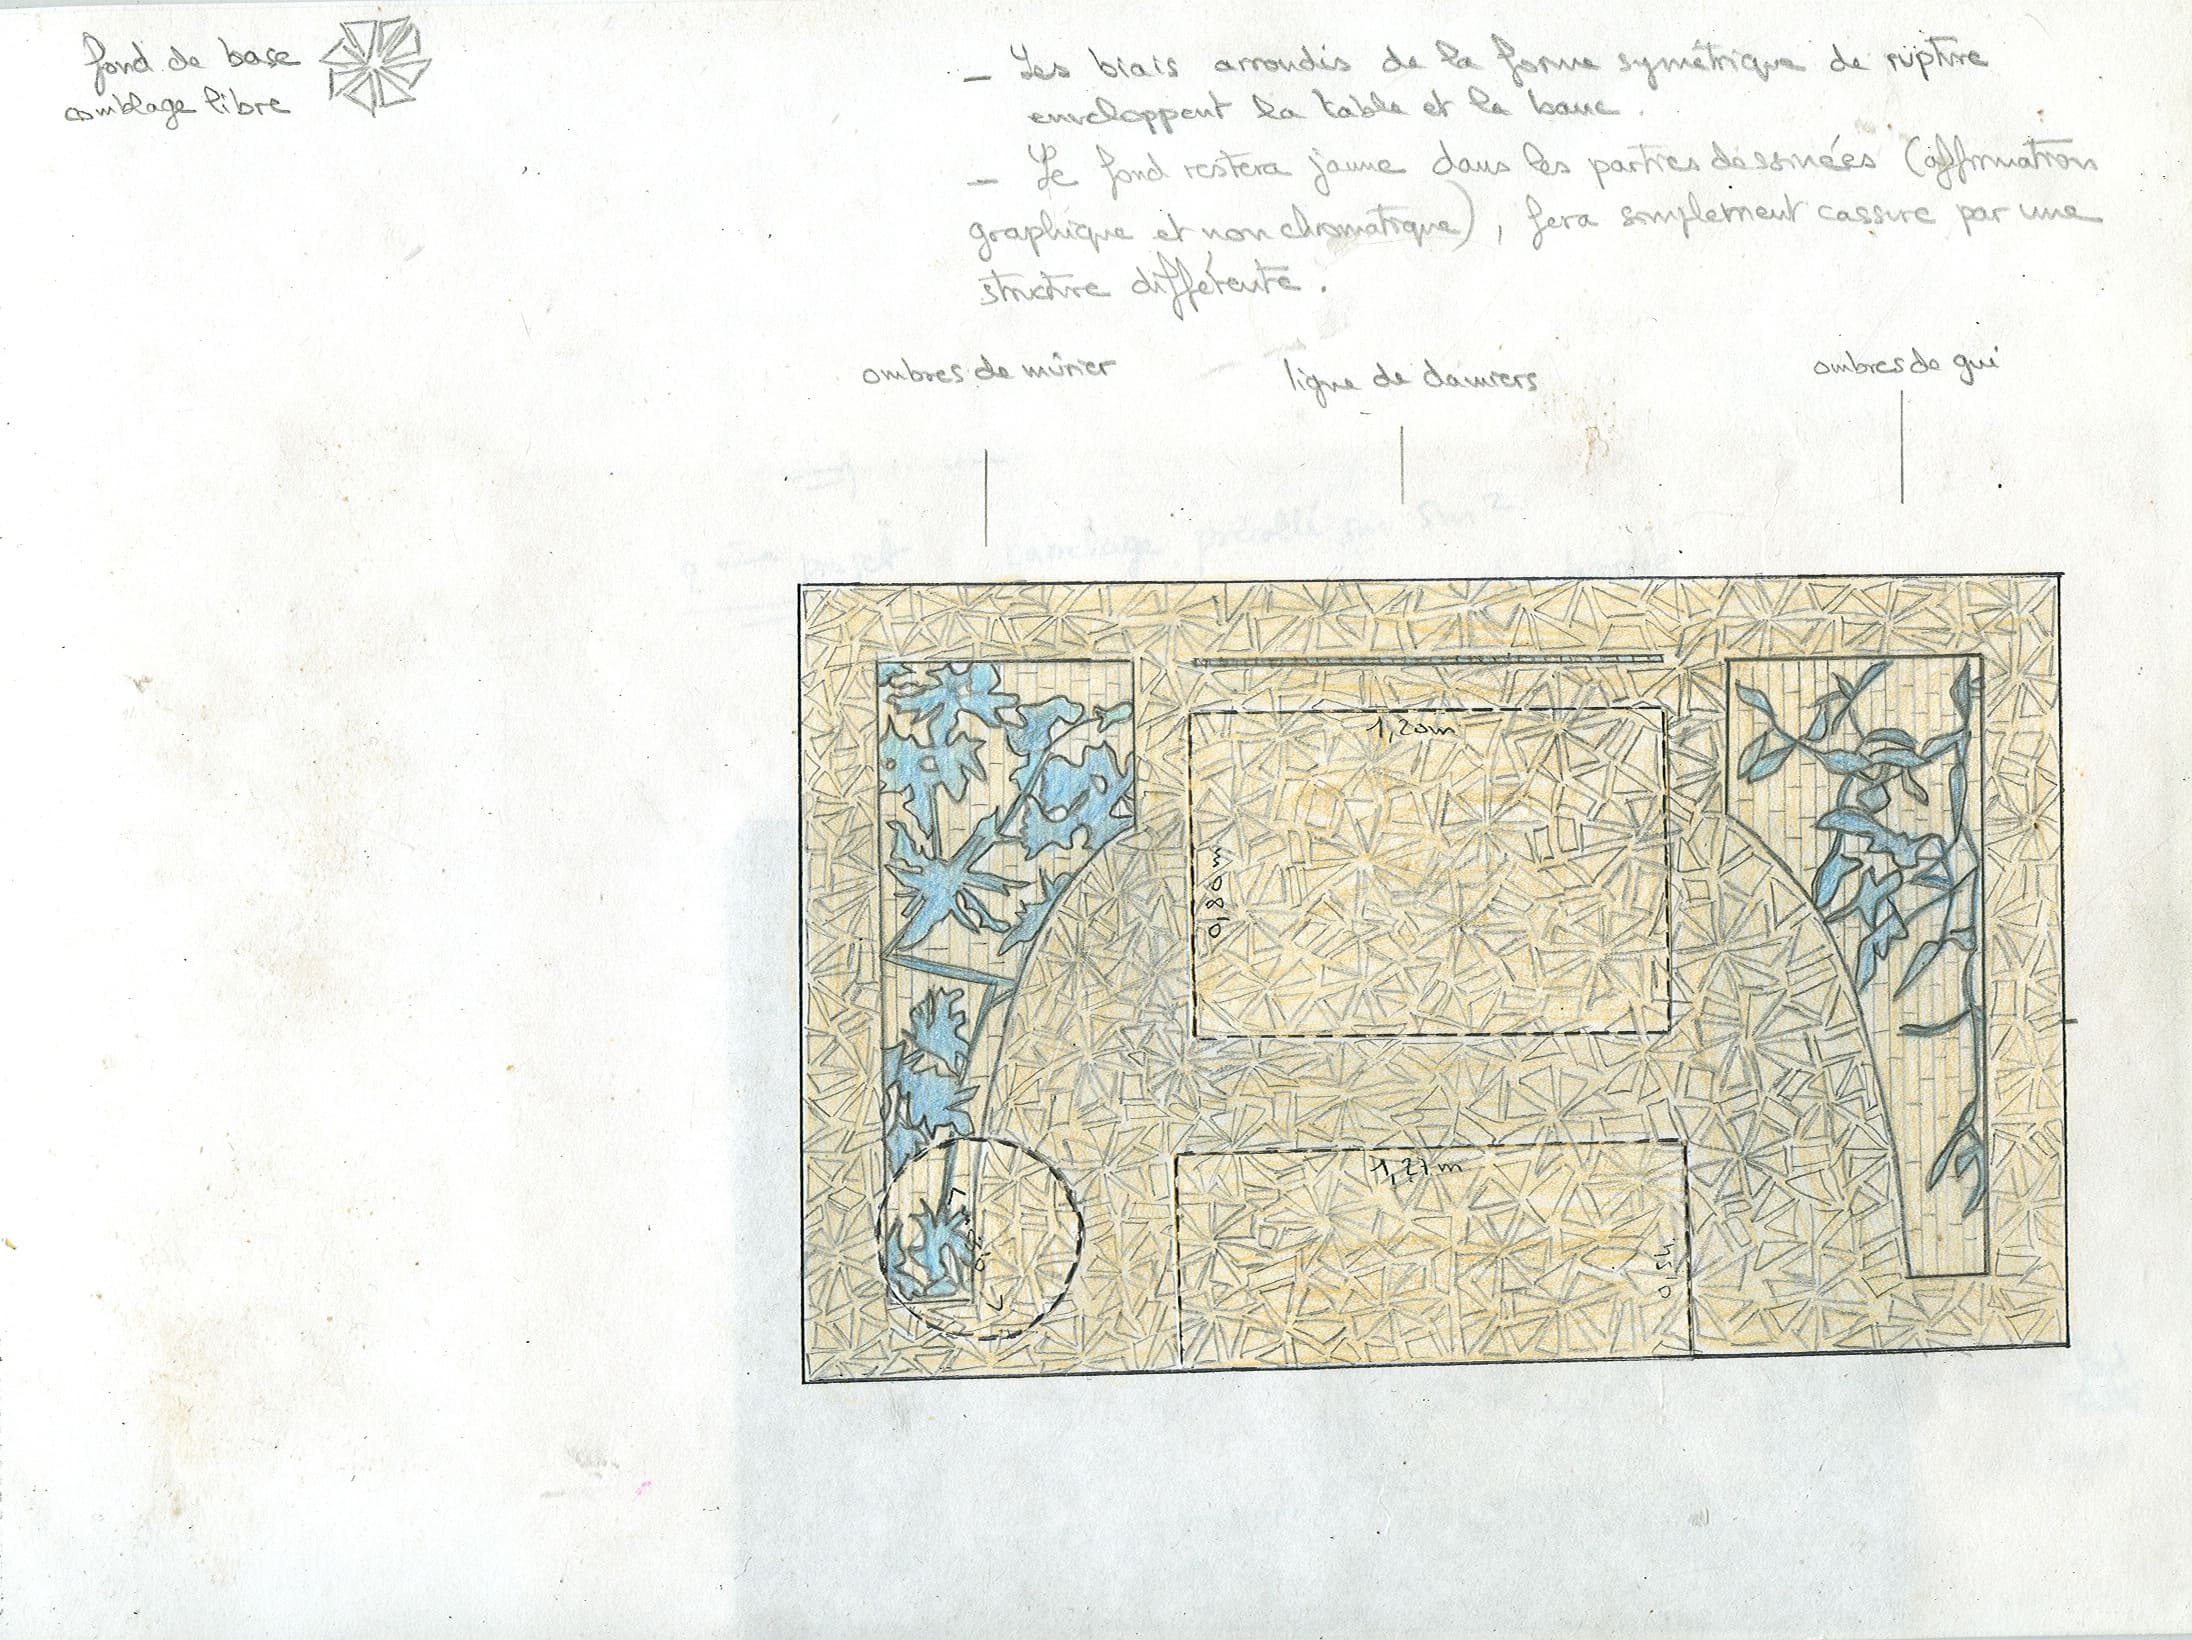 fond de base
comblage libre
– Les biais arrondis de la forme symétrique de rupture
enveloppent la table et le banc.
– Le fond restera jaune dans les parties dessinées (affirmation
graphique et non chromatique), sera simplement cassure par une
structure différente.
ombres de mûrier
ligne de damiers
ombres de gui
1,20m
0,80m
1,27m
0,54